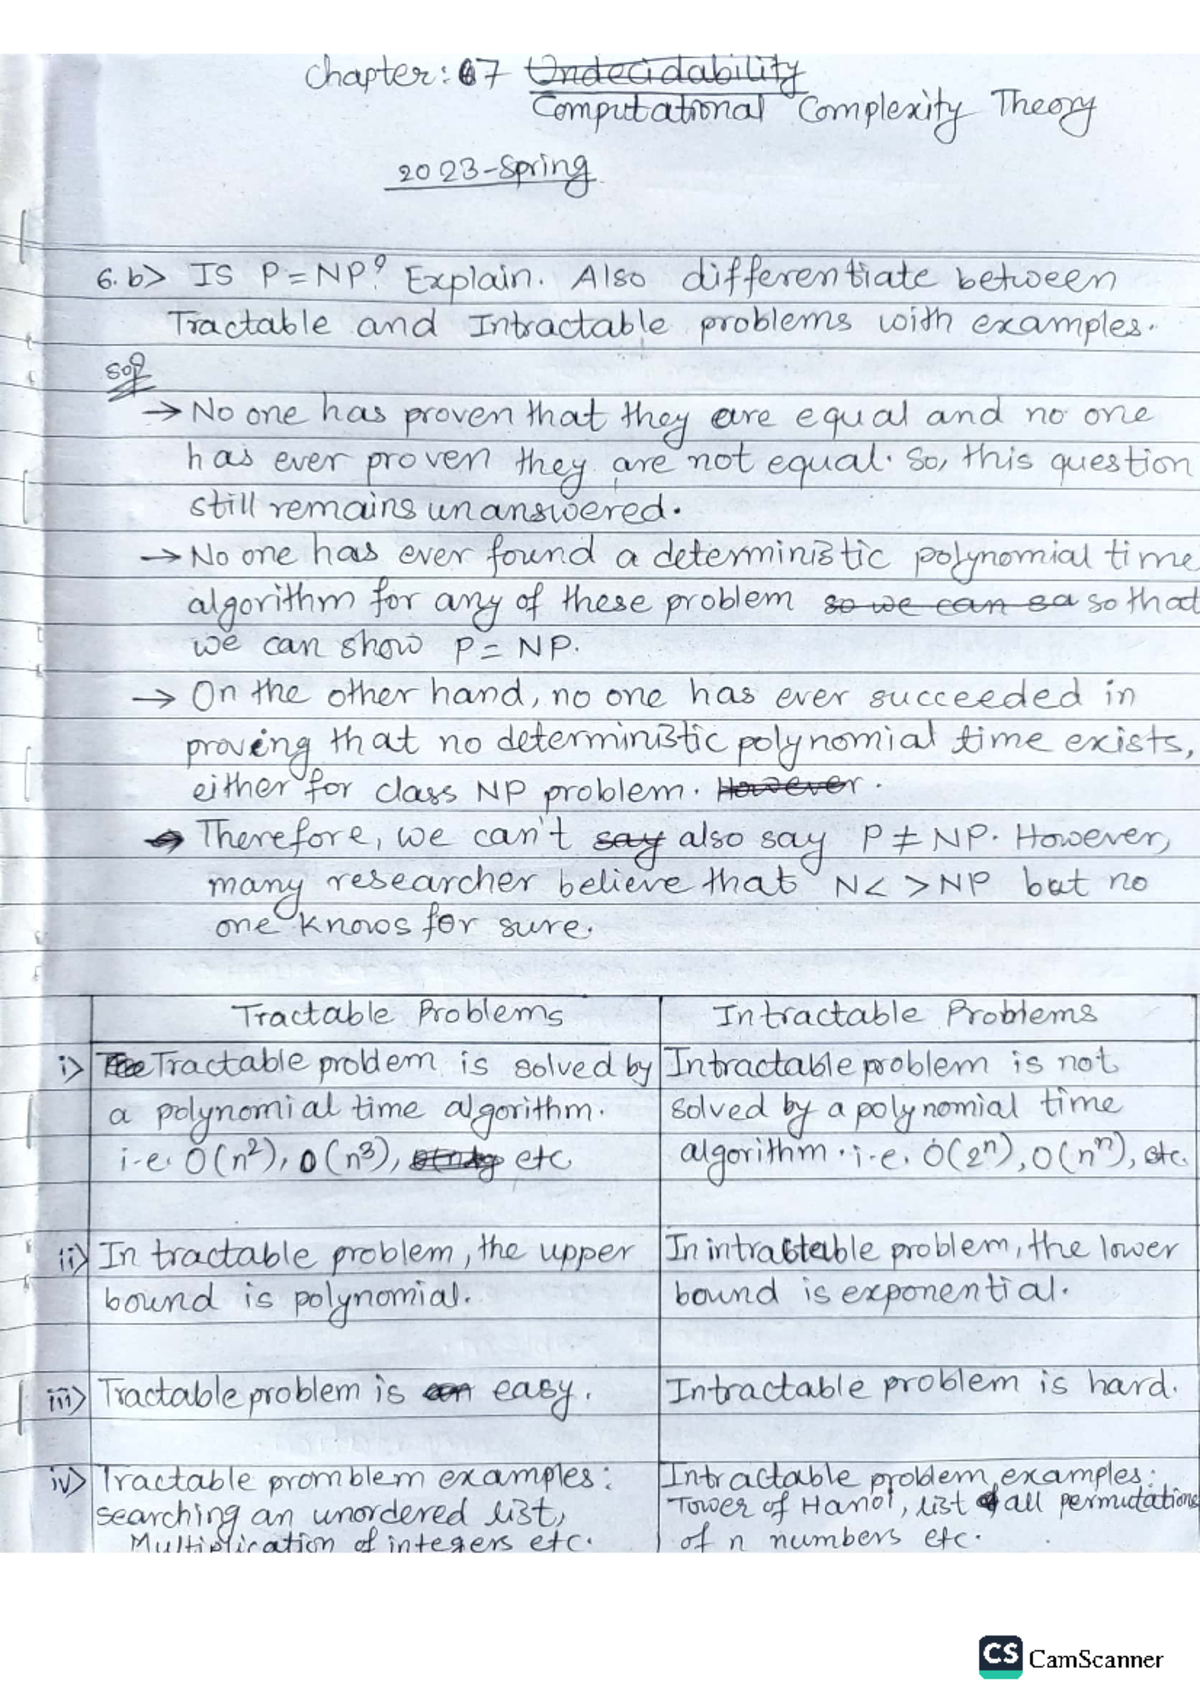 Chapter: 67 Undecidability
Computational Complexity Theory
2023-Spring
6.b> IS P=NP? Explain. Also differentiate between
Tractable and Intractable problems with examples.
Sol
→ No one has proven that they are equal and no one
has ever proven they are not equal. So, this question
still remains unanswered.
→ No one has ever found a deterministic polynomial time
algorithm for any of these problem so we can sa so that
we can show P=NP.
→ On the other hand, no one has ever succeeded in
proving that no deterministic polynomial time exists,
either for class NP problem. However.
→ Therefore, we can't say also say P≠NP. However,
many researcher believe that N< >NP but no
one knows for sure.
Tractable Problems
Intractable Problems
i> Tractable problem is solved by
a polynomial time algorithm.
i.e. O(n²), O(n³), etc
Intractable problem is not
solved by a polynomial time
algorithm. i.e. O(2ⁿ), O(nⁿ), etc.
ii> In tractable problem, the upper
bound is polynomial.
In intractable problem, the lower
bound is exponential.
iii> Tractable problem is easy.
Intractable problem is hard.
iv> Tractable promblem examples:
searching an unordered list,
Multiplication of integers etc.
Intractable problem examples:
Tower of Hanoi, list of all permutations
of n numbers etc.
CS CamScanner